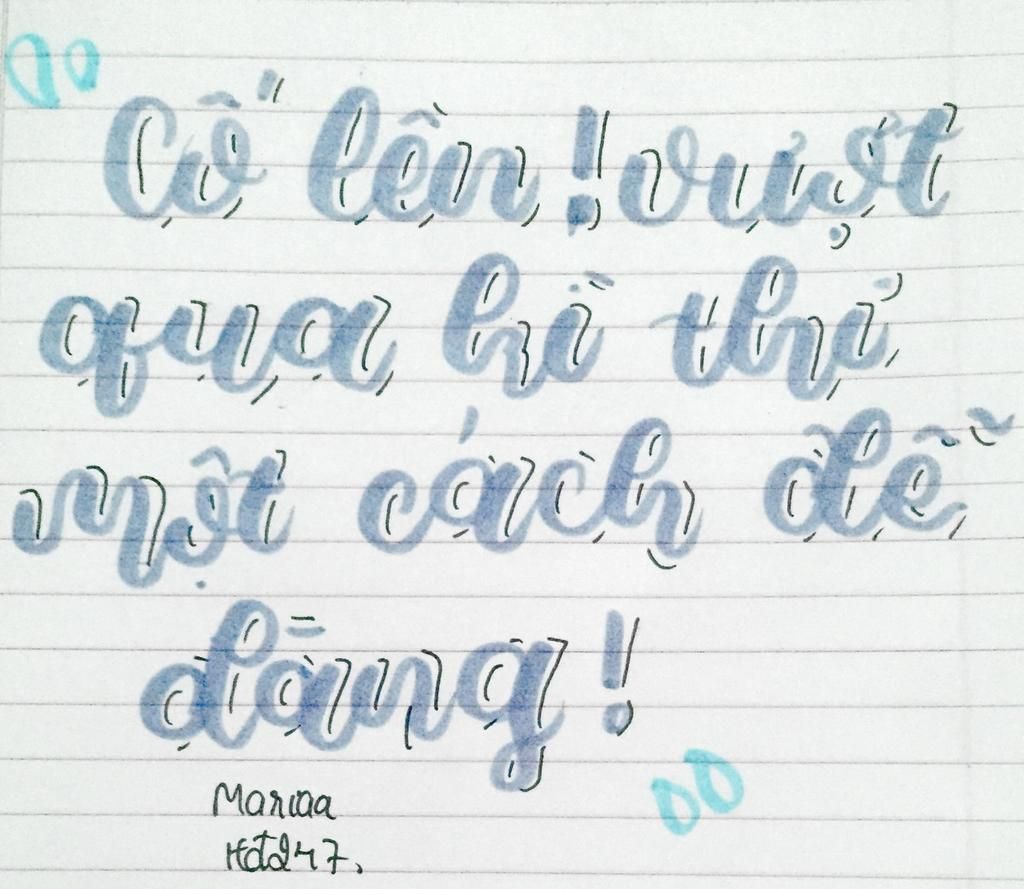 Cố lên! vượt
qua kì thi
một cách dễ
dàng!
Mariaa
Hđ247.